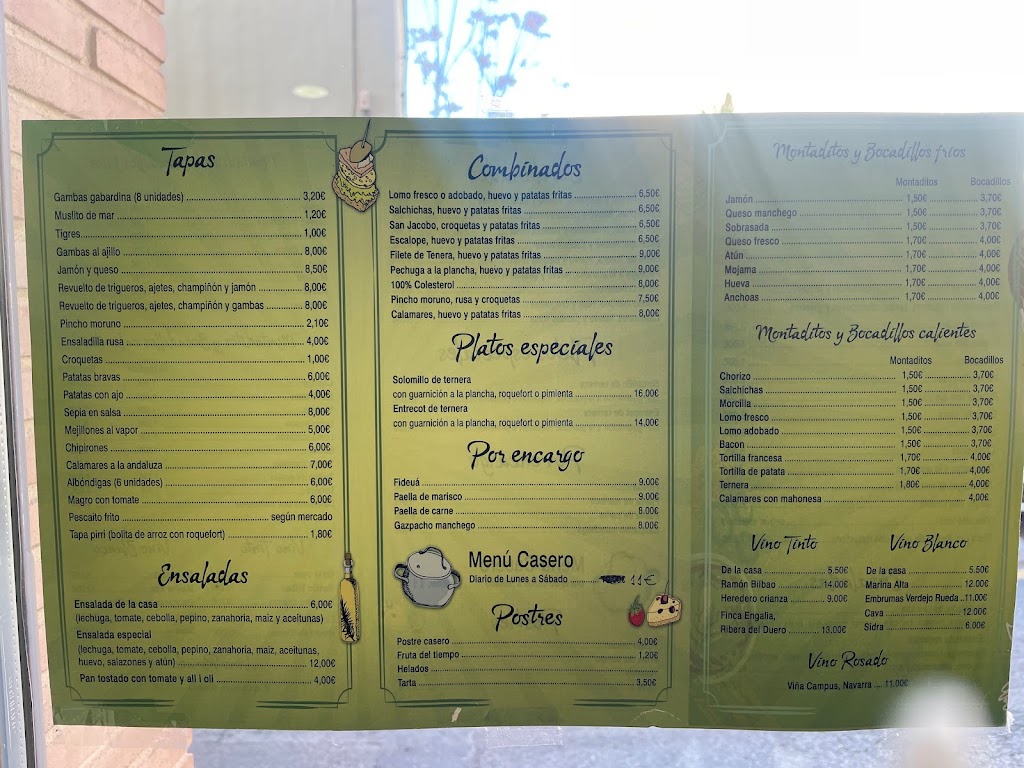 Tapas
Gambas gabardina (8 unidades) 3,20€
Muslito de mar 1,20€
Tigres 1,00€
Gambas al ajillo 8,00€
Jamón y queso 8,50€
Revuelto de trigueros, ajetes, champiñón y jamón 8,00€
Revuelto de trigueros, ajetes, champiñón y gambas 8,00€
Pincho moruno 2,10€
Ensaladilla rusa 4,00€
Croquetas 1,00€
Patatas bravas 6,00€
Patatas con ajo 4,00€
Sepia en salsa 8,00€
Mejillones al vapor 5,00€
Chipirones 6,00€
Calamares a la andaluza 7,00€
Albóndigas (6 unidades) 6,00€
Magro con tomate 6,00€
Pescaito frito según mercado
Tapa pirri (bolita de arroz con roquefort) 1,80€
Ensaladas
Ensalada de la casa 6,00€
(lechuga, tomate, cebolla, pepino, zanahoria, maiz y aceitunas)
Ensalada especial
(lechuga, tomate, cebolla, pepino, zanahoria, maiz, aceitunas,
huevo, salazones y atún) 12,00€
Pan tostado con tomate y all i oli 4,00€
Combinados
Lomo fresco o adobado, huevo y patatas fritas 6,50€
Salchichas, huevo y patatas fritas 6,50€
San Jacobo, croquetas y patatas fritas 6,50€
Escalope, huevo y patatas fritas 6,50€
Filete de Tenera, huevo y patatas fritas 9,00€
Pechuga a la plancha, huevo y patatas fritas 9,00€
100% Colesterol 8,00€
Pincho moruno, rusa y croquetas 7,50€
Calamares, huevo y patatas fritas 8,00€
Platos especiales
Solomillo de ternera
con guarnición a la plancha, roquefort o pimienta 16,00€
Entrecot de ternera
con guarnición a la plancha, roquefort o pimienta 14,00€
Por encargo
Fideuá 9.00€
Paella de marisco 9.00€
Paella de carne 8.00€
Gazpacho manchego 8.00€
Menú Casero
Diario de Lunes a Sábado 11€
Postres
Postre casero 4,00€
Fruta del tiempo 1,20€
Helados
Tarta 3,50€
Montaditos y Bocadillos fríos
Montaditos Bocadillos
Jamón 1,50€ 3,70€
Queso manchego 1,50€ 3,70€
Sobrasada 1,50€ 3,70€
Queso fresco 1,70€ 4,00€
Atún 1,70€ 4,00€
Mojama 1,70€ 4,00€
Hueva 1,70€ 4,00€
Anchoas 1,70€ 4,00€
Montaditos y Bocadillos calientes
Montaditos Bocadillos
Chorizo 1,50€ 3,70€
Salchichas 1,50€ 3,70€
Morcilla 1,50€ 3,70€
Lomo fresco 1,50€ 3,70€
Lomo adobado 1,50€ 3,70€
Bacon 1,50€ 3,70€
Tortilla francesa 1,70€ 4,00€
Tortilla de patata 1,70€ 4,00€
Ternera 1,80€ 4,00€
Calamares con mahonesa 4,00€
Vino Tinto
De la casa 5.50€
Ramón Bilbao 14.00€
Heredero crianza 9.00€
Finca Engalia,
Ribera del Duero 13.00€
Vino Blanco
De la casa 5.50€
Marina Alta 12.00€
Embrumas Verdejo Rueda 11.00€
Cava 12.00€
Sidra 6.00€
Vino Rosado
Viña Campus, Navarra 11.00€